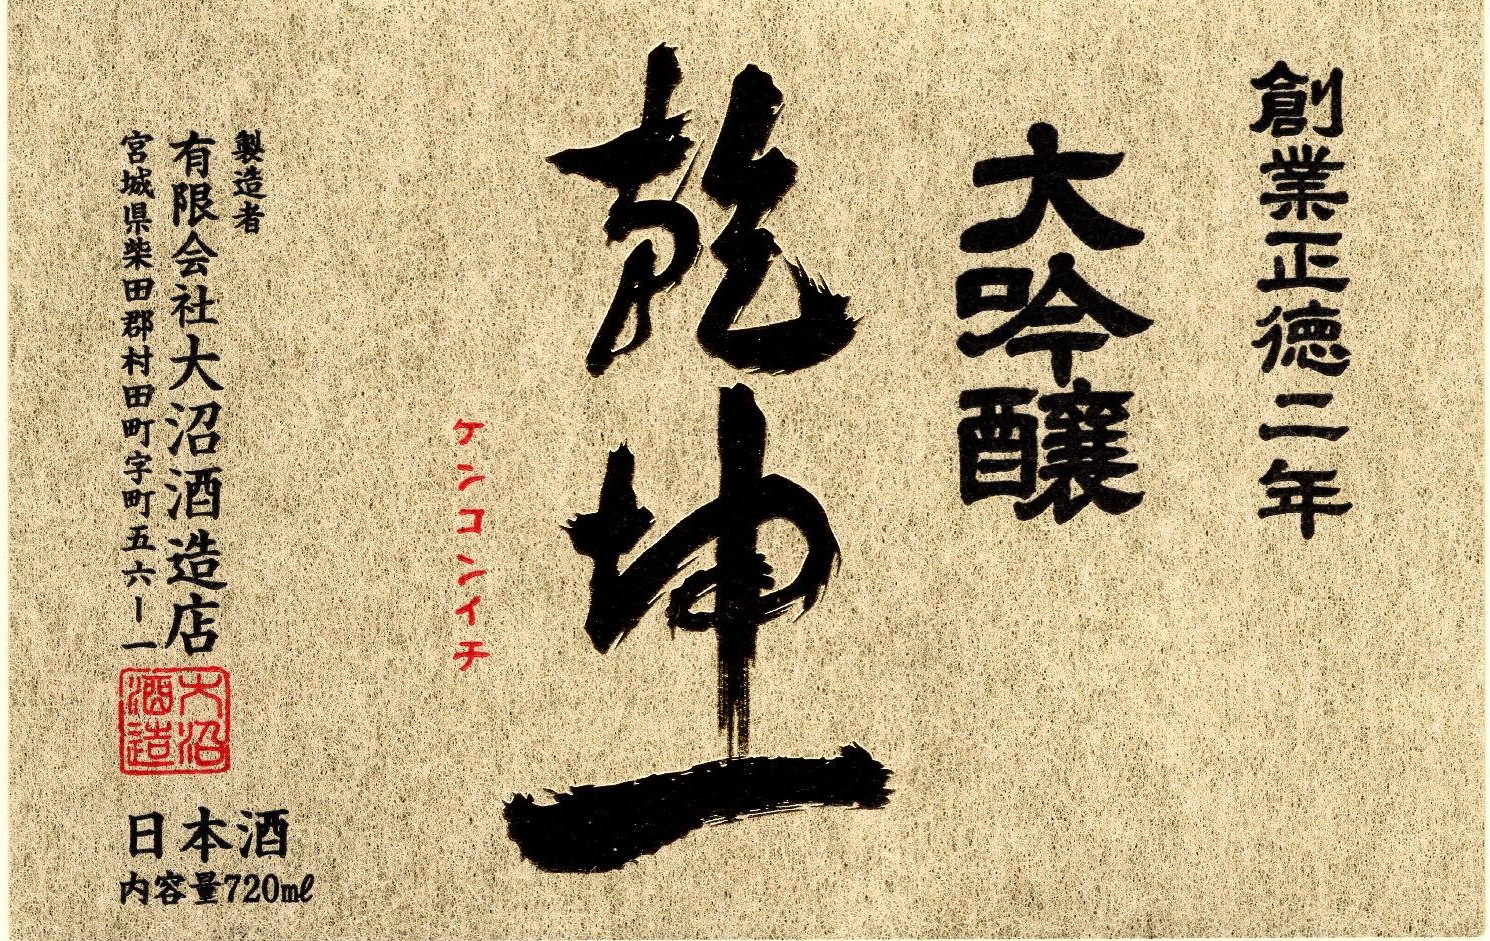 創業正徳二年
大吟醸
乾坤一
ケンコンイチ
製造者
有限会社大沼酒造店
宮城県柴田郡村田町字町五六ー一
大沼
酒造
日本酒
内容量720mℓ